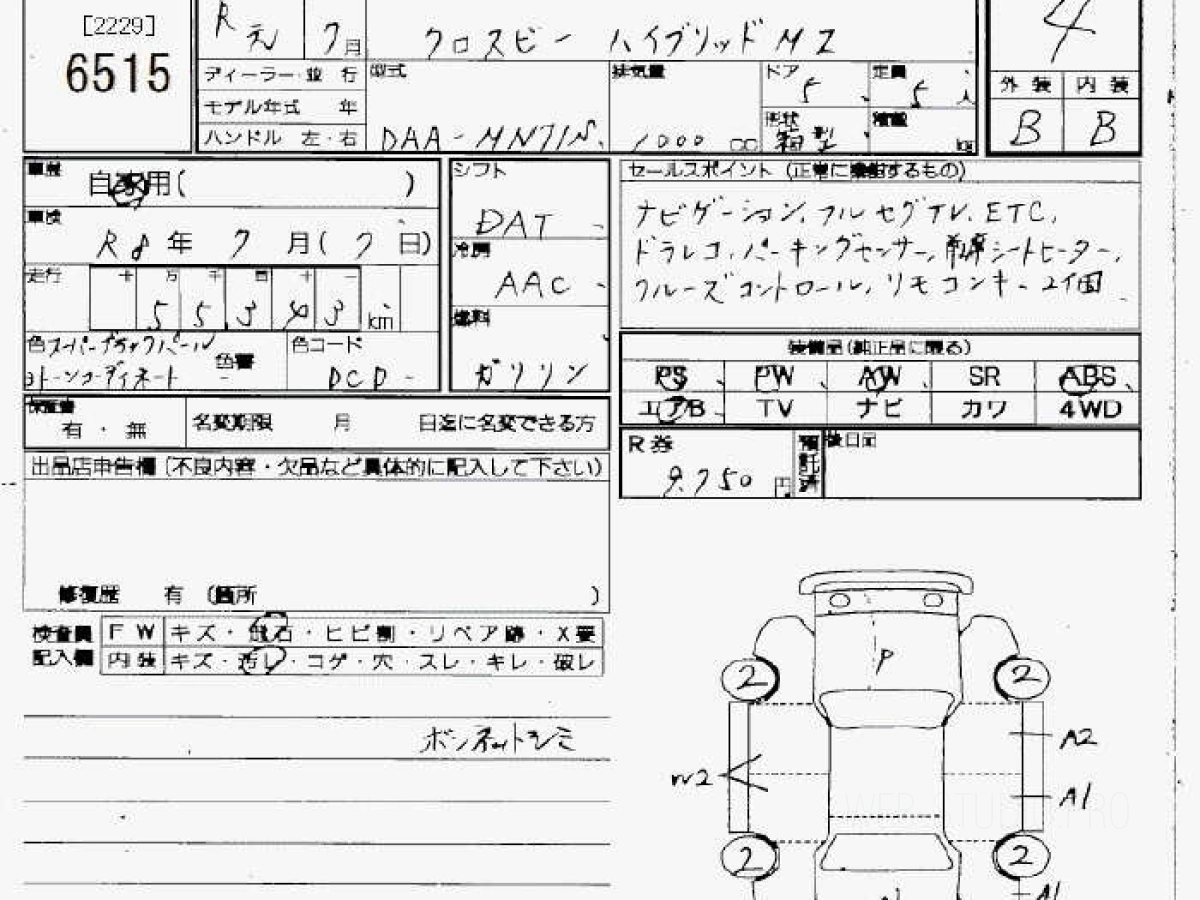 [2229]
6515
R元 7月 クロスビー ハイブリッドMZ
4
ディーラー・並行
モデル年式 年
ハンドル 左・右
型式
DAA-MN71S
排気量
1000 cc
ドア
5
定員
5人
形状
箱型
積載
kg
外装 内装
B B
車歴
自家用( )
車検
R8年 7月(7日)
走行
十 万 千 百 十 一
55,343 km
色 スーパーブラックパール
2トーンコーディネート
色替
色コード
DCD
シフト
DAT
冷房
AAC
燃料
ガソリン
セールスポイント (正常に機能するもの)
ナビゲーション, フルセグTV, ETC,
ドラレコ, パーキングセンサー, 前席シートヒーター,
クルーズコントロール, リモコンキー2個
装備品(純正品に限る)
PS PW AW SR ABS
エアB TV ナビ カワ 4WD
保証書
有・無
名変期限 月 日迄に名変できる方
R券
9,750円
預託済
後日品
出品店申告欄(不良内容・欠品など具体的に記入して下さい)
修復歴 有 (箇所 )
検査員
記入欄
FW キズ・飛石・ヒビ割・リペア跡・X要
内装 キズ・汚レ・コゲ・穴・スレ・キレ・破レ
ボンネットシミ
P
2 2
A2
W2
A1
2 2
A1